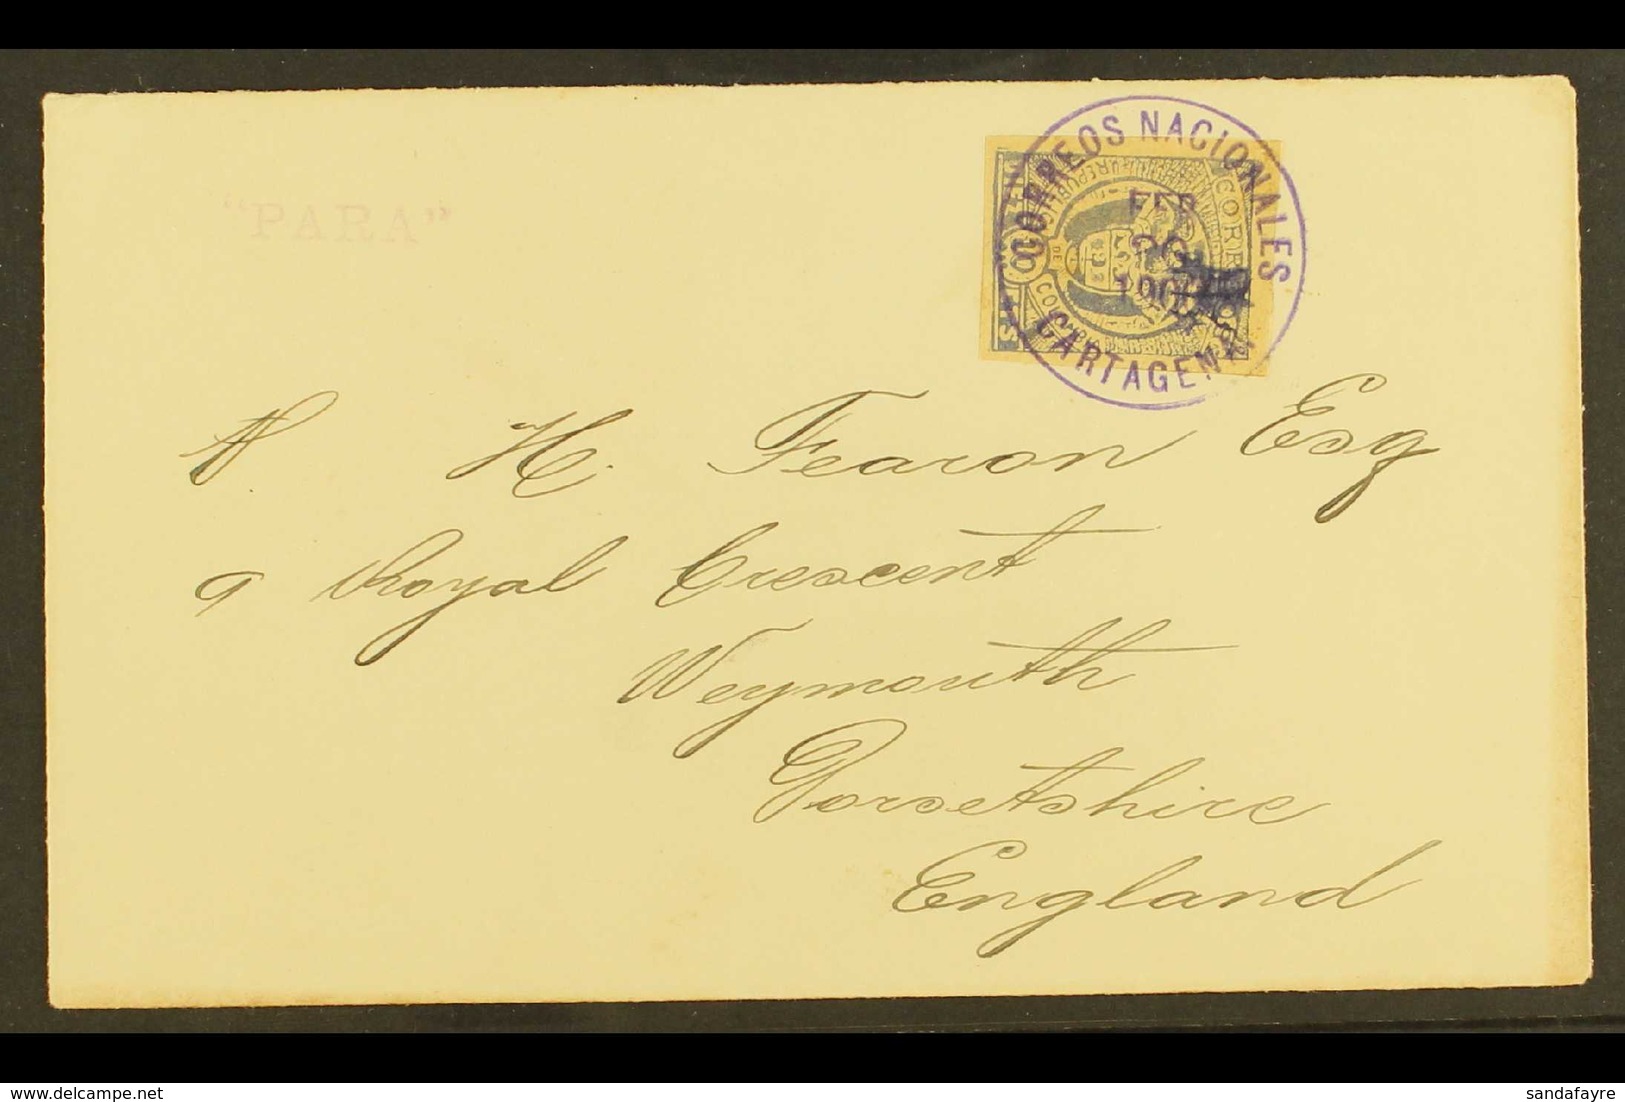 "PARA"
CORREOS NACIONALES
FEB
26
CARTAGENA
H. Fearon Esq
9 Royal Crescent
Weymouth
Dorsetshire
England
delcampe.net
sandafayre